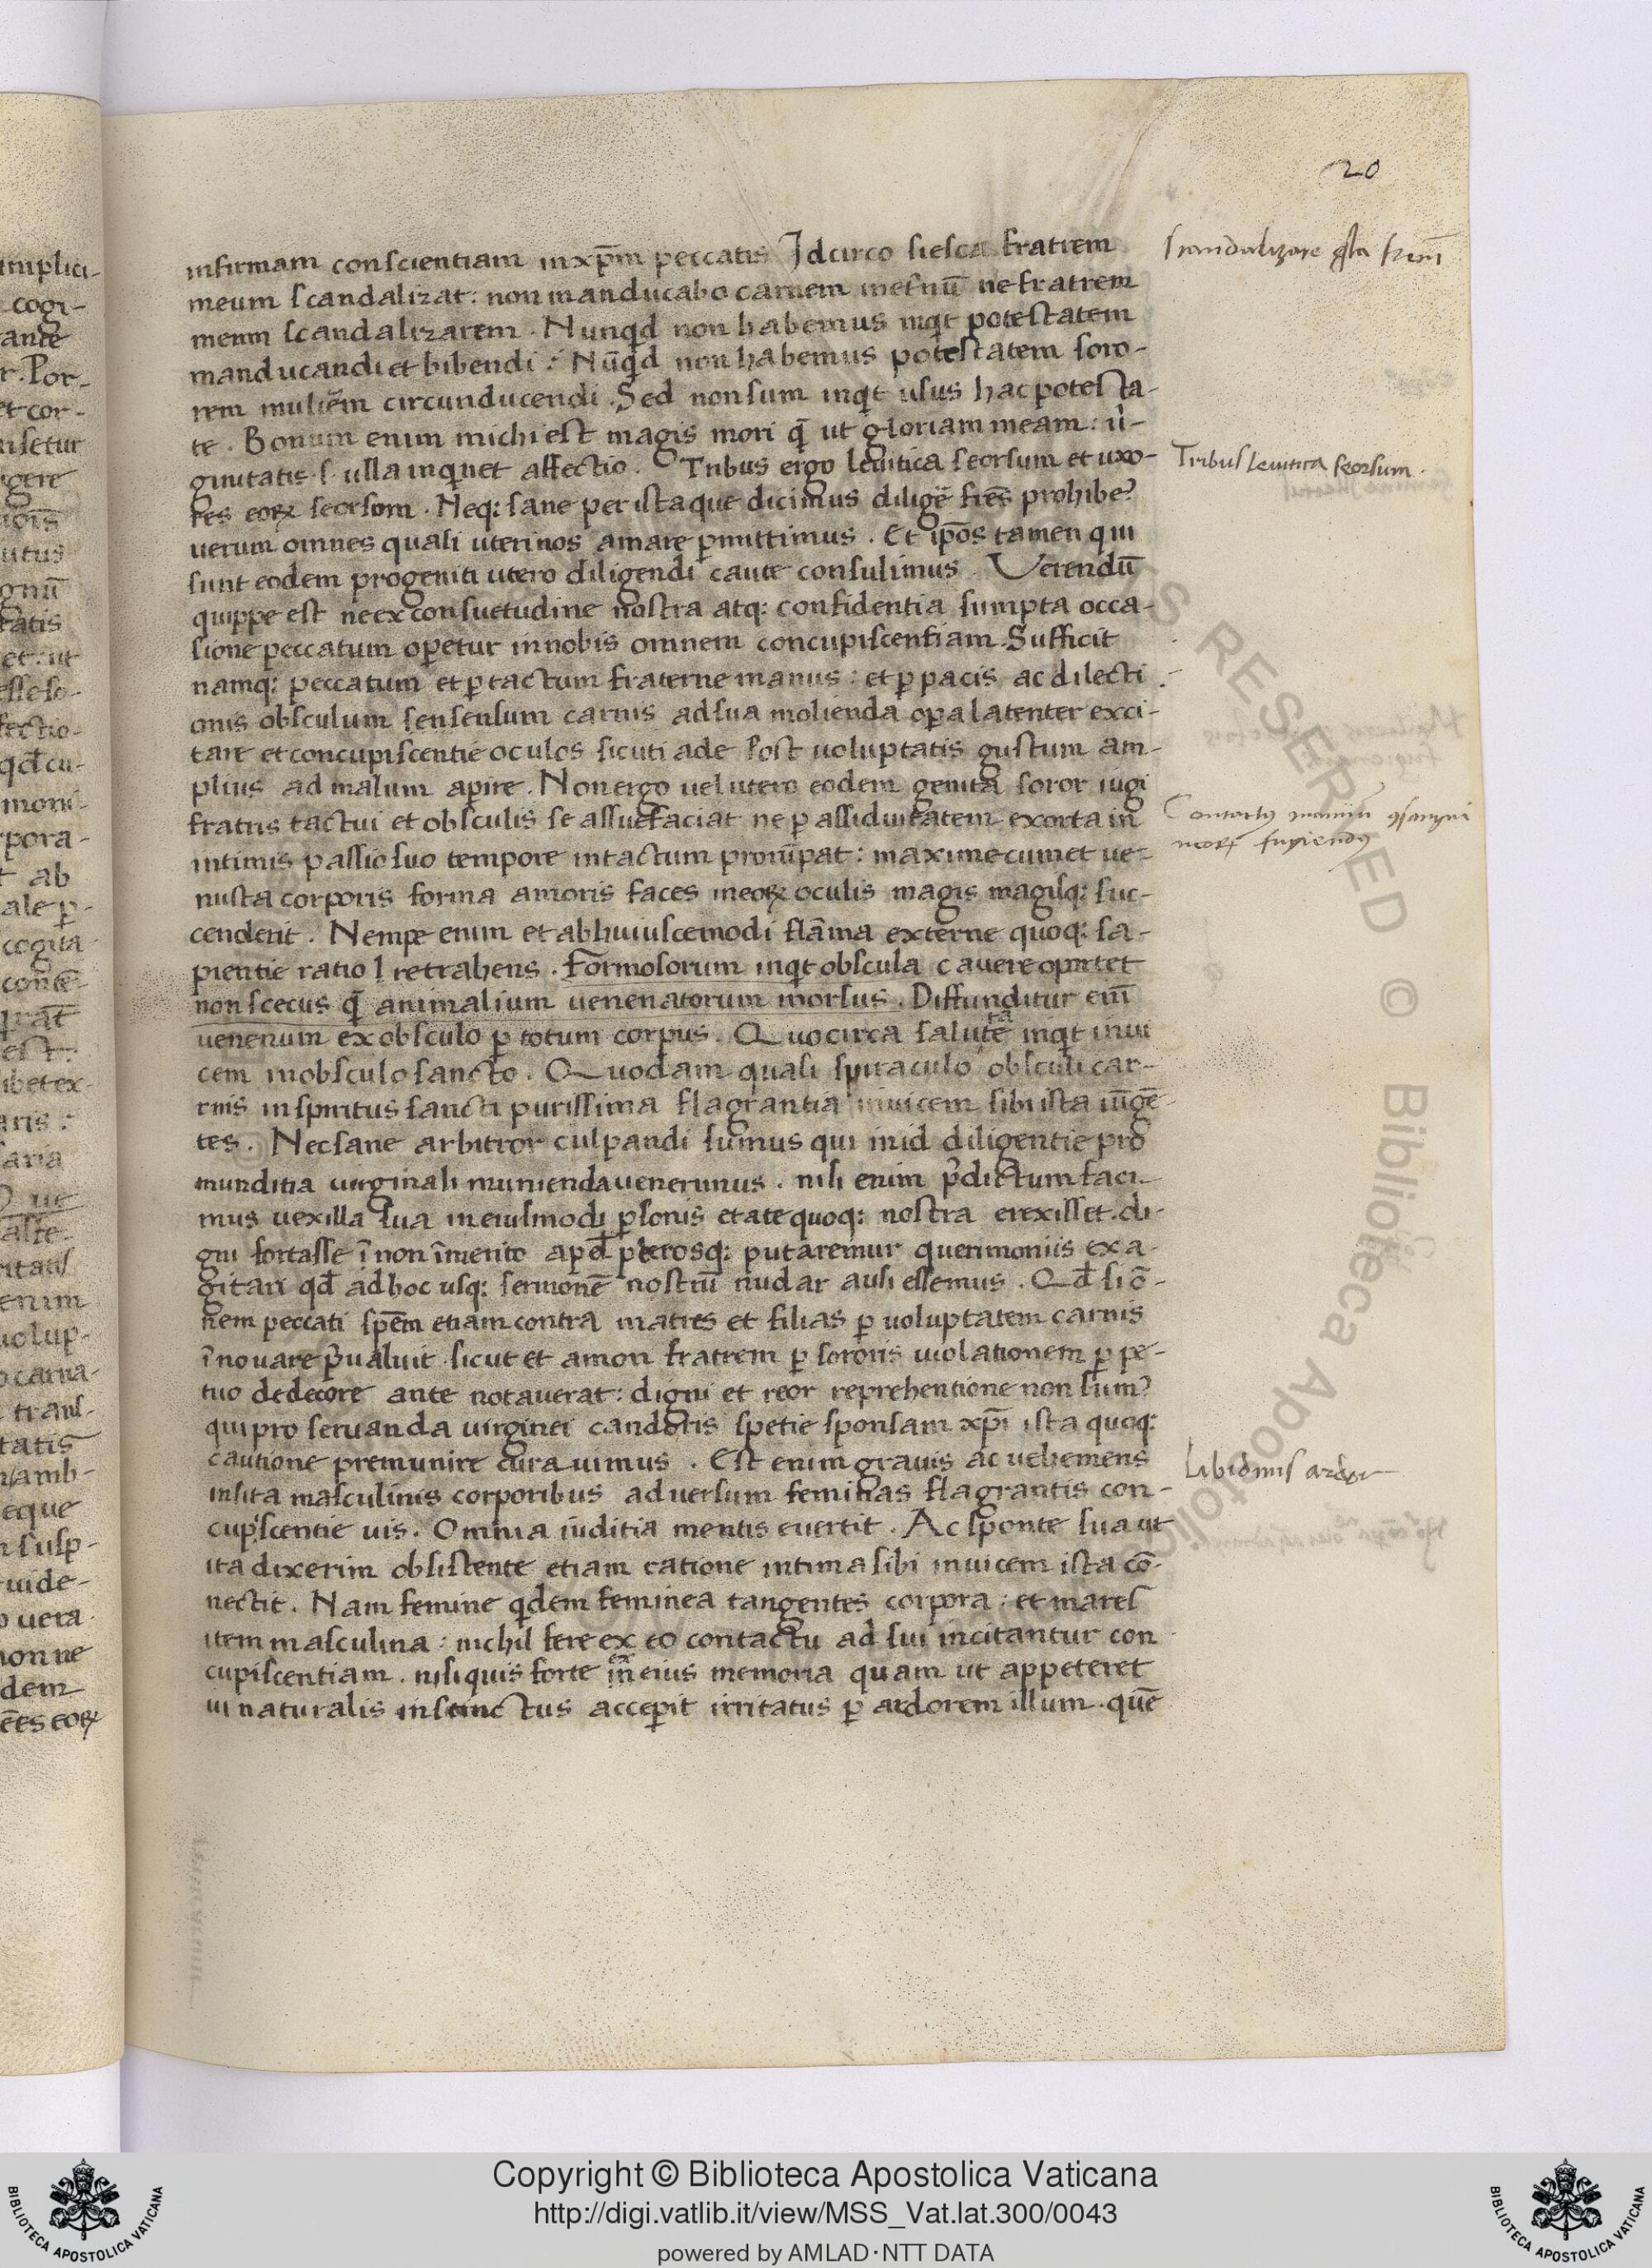 20
infirmam conscientiam in xp̄m peccatis Idcirco si esca fratrem
meum scandalizat: non manducabo carnem inet̄nū ne fratrem
meum scandalizarem. Nunqd non habemus inqt potestatem
manducandi et bibendi: Nūqd non habemus potestatem soro-
rem muliēm circunducendi. Sed non sum inqt usus hac potesta-
te. Bonum enim michi est magis mori q̄ ut gloriam meam: uir-
ginitatis .s. ulla inqnet affectio. Tribus ergo levitica seorsum et uxo-
res eoꝝ seorsom. Neq: sane per ista que dicimus diligē frēs prohibe?
uerum omnes quasi uterinos amare pmittimus. Et ip̄os tamen qui
sunt eodem progeniti utero diligendi caute consulimus. Verendū
quippe est ne ex consuetudine nostra atq: confidentia sumpta occa-
sione peccatum opetur in nobis omnem concupiscentiam. Sufficit
namq: peccatum et ꝑ tactum fraterne manus: et ꝑ pacis ac dilecti
onis obsculum sensensum carnis ad sua molienda opa latenter exci-
tare et concupiscentie oculos sicuti ade post uoluptatis gustum am-
plius ad malum apire. Non ergo uel utero eodem genita soror iugi
fratris tactui et obsculis se assuefaciat ne ꝑ assiduitatem exorta in
intimis passio suo tempore in tactum prorūpat: maxime cum et ue-
nusta corporis forma amoris faces in eoꝝ oculis magis magisq: suc-
cenderit. Nempe enim et ab huiuscemodi flāma externe quoq: sa-
pientie ratio l retrahens. Formosorum inqt obscula cauere oportet
non scecus q̄ animalium uenenatorum morsus. Diffunditur eni̅
uenenum ex obsculo ꝑ totum corpus. Quocirca salutate inqt inui
cem in obsculo sancto. Quodam quasi spiraculo obsculi car-
rnis in spiritus sancti purissima flagrantia inuicem sibi ista iūgē-
tes. Nec sane arbitror culpandi sumus qui in id diligentie pro
munditia uirginali munienda uenerimus. nisi enim p̄dictum faci-
mus uexilla sua in eiusmodi ꝑsonis etate quoq: nostra erexisset. di-
gni fortasse ī non īmerito aped plerosq: putaremur querimoniis exa-
gitari qd̄ ad hoc usq: sermonē nostrū nudar ausi essemus. Qd̄ si ō-
nem peccati spēm etiam contra matres et filias ꝑ uoluptatem carnis
īnouare p̄ualuit sicut et amon fratrem ꝑ sororis uiolationem ꝑ pe-
tuo dedecore ante notauerat: digni et reor reprehentione non sum?
qui pro seruanda uirginei candoris spetie sponsam xp̄i ista quoq:
cautione premunire curauimus. Est enim grauis ac uehemens
insita masculinis corporibus aduersum feminas flagrantis con-
cupiscentie uis. Omnia iuditia mentis euertit. Ac sponte sua ut
ita dixerim obsistente etiam ratione intima sibi inuicem ista cō-
nectit. Nam femine qdem feminea tangentes corpora: et mares
item masculina: nichil fere ex eo contactu ad sui incitantur con
cupiscentiam. nisi quis forte in ex eius memoria quam ut appeteret
ui naturalis instinctus accepit irritatus ꝑ ardorem illum. quē
scandalizare
Tribus levitica seorsum.
fugiendus
Libidinis ardor
Copyright © Biblioteca Apostolica Vaticana
http://digi.vatlib.it/view/MSS_Vat.lat.300/0043
powered by AMLAD·NTT DATA
BIBLIOTECA APOSTOLICA VATICANA
BIBLIOTECA APOSTOLICA VATICANA